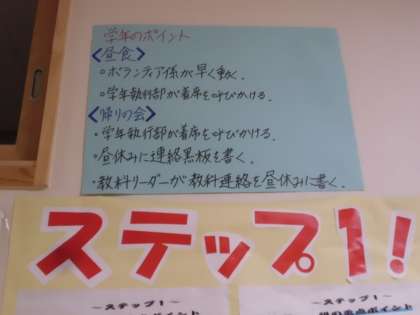 学年のポイント
<昼食>
○ボランティア係が早く動く.
○学年執行部が着席を呼びかける.
<帰りの会>
・学年執行部が着席を呼びかける.
・昼休みに連絡黒板を書く.
・教科リーダーが教科連絡を昼休みに書く.
ステップ1!
～ステップ1～
～ステップ1～